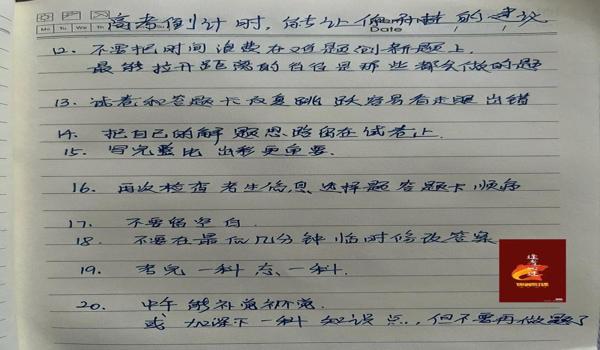 高考倒计时,能让你的建议
Mo Tu We Th
Date
12. 不要把时间浪费在难题创新题上
最能拉开距离的往往是那些都会做的题
13. 试卷和答题卡反复跳跃容易看走眼出错
14. 把自己的解题思路留在试卷上
15. 写完整比出彩更重要.
16. 再次检查考生信息选择题答题卡顺序
17. 不要留空白.
18. 不要在最低几分钟临时修改答案
19. 考完一科忘一科.
20. 中午能补觉补觉.
或加深下一科知识点..,但不要再做题了